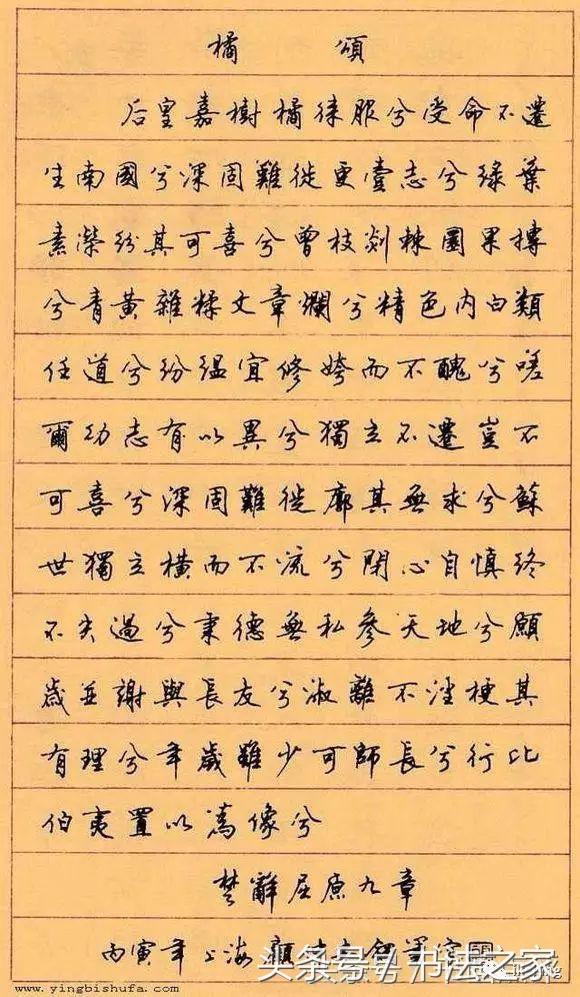 橘頌
后皇嘉樹橘徕服兮受命不遷
生南國兮深固難徙更壹志兮緑葉
素榮紛其可喜兮曾枝剡棘圜果摶
兮青黃雜糅文章爛兮精色内白類
任道兮紛緼宜修姱而不醜兮嗟
爾幼志有以異兮獨立不遷豈不
可喜兮深固難徙廓其無求兮蘇
世獨立橫而不流兮閉心自慎終
不失過兮秉德無私參天地兮願
歲並謝與長友兮淑離不淫梗其
有理兮年歲雖少可師長兮行比
伯夷置以為像兮
楚辭屈原九章
丙寅年上海
头条号 书法之家
www.yingbishufa.com